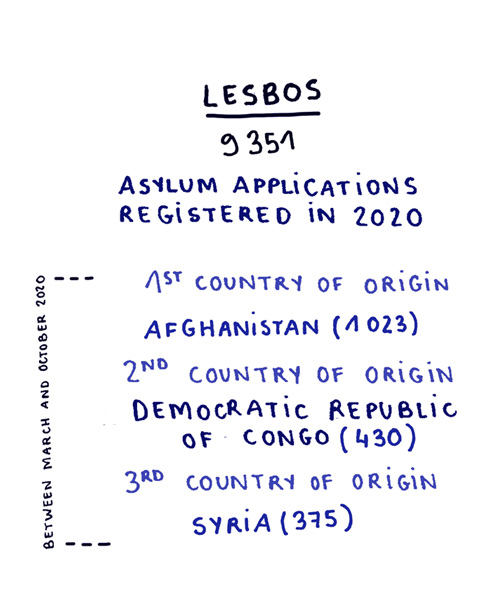 LESBOS
9 351
ASYLUM APPLICATIONS
REGISTERED IN 2020
BETWEEN MARCH AND OCTOBER 2020
1ST COUNTRY OF ORIGIN
AFGHANISTAN (1 023)
2ND COUNTRY OF ORIGIN
DEMOCRATIC REPUBLIC
OF CONGO (430)
3RD COUNTRY OF ORIGIN
SYRIA (375)